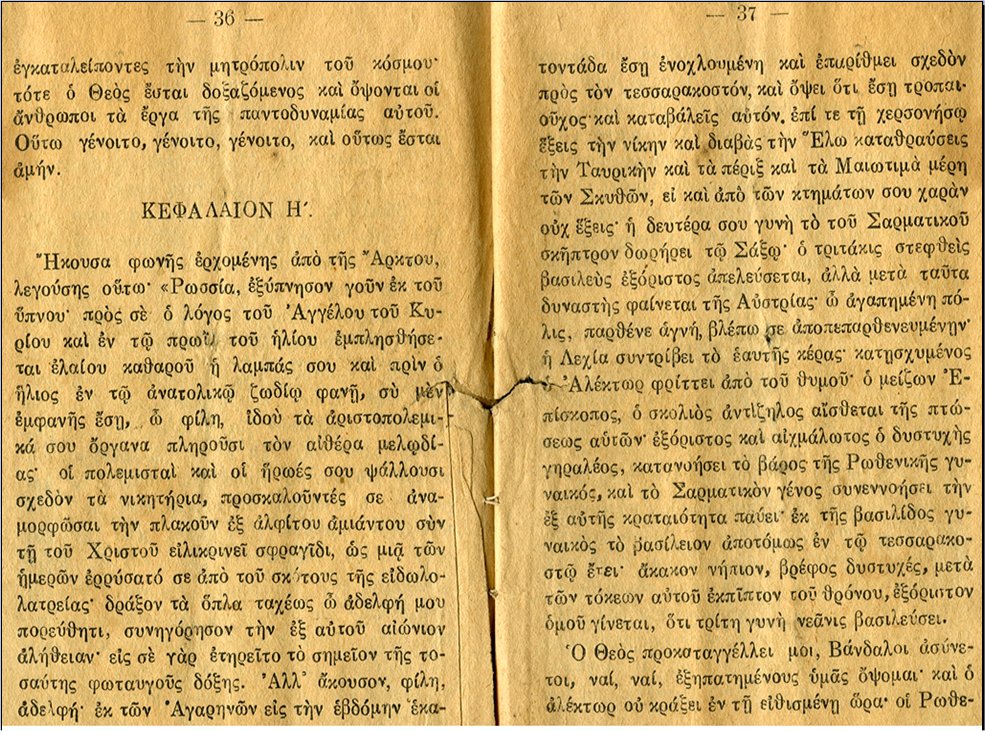 — 36 —
ἐγκαταλείποντες τὴν μητρόπολιν τοῦ κόσμου·
τότε ὁ Θεὸς ἔσται δοξαζόμενος καὶ ὄψονται οἱ
ἄνθρωποι τὰ ἔργα τῆς παντοδυναμίας αὐτοῦ.
Οὕτω γένοιτο, γένοιτο, γένοιτο, καὶ οὕτως ἔσται
ἀμήν.
ΚΕΦΑΛΑΙΟΝ Η΄.
Ἤκουσα φωνῆς ἐρχομένης ἀπὸ τῆς Ἄρκτου,
λεγούσης οὕτω· «Ρωσσία, ἐξύπνησον γοῦν ἐκ τοῦ
ὕπνου· πρὸς σὲ ὁ λόγος τοῦ Ἀγγέλου τοῦ Κυ-
ρίου καὶ ἐν τῷ πρωῒ τοῦ ἡλίου ἐμπλησθήσε-
ται ἐλαίου καθαροῦ ἡ λαμπάς σου καὶ πρὶν ὁ
ἥλιος ἐν τῷ ἀνατολικῷ ζωδίῳ φανῇ, σὺ μὲν
ἐμφανὴς ἔσῃ, ὦ φίλη, ἰδοὺ τὰ ἀριστοπολεμι-
κά σου ὄργανα πληροῦσι τὸν αἰθέρα μελῳδί-
ας· οἱ πολεμισταὶ καὶ οἱ ἥρωές σου ψάλλουσι
σχεδὸν τὰ νικητήρια, προσκαλοῦντές σε ἀνα-
μορφῶσαι τὴν πλακοῦν ἐξ ἀλφίτου ἀμιάντου σὺν
τῇ τοῦ Χριστοῦ εἰλικρινεῖ σφραγῖδι, ὡς μιᾷ τῶν
ἡμερῶν ἐρρύσατό σε ἀπὸ τοῦ σκότους τῆς εἰδωλο-
λατρείας· δράξον τὰ ὅπλα ταχέως ὦ ἀδελφή μου
πορεύθητι, συνηγόρησον τὴν ἐξ αὐτοῦ αἰώνιον
ἀλήθειαν· εἰς σὲ γὰρ ἐτηρεῖτο τὸ σημεῖον τῆς το-
σαύτης φωταυγοῦς δόξης. Ἀλλ' ἄκουσον, φίλη,
ἀδελφή· ἐκ τῶν Ἀγαρηνῶν εἰς τὴν ἑβδόμην ἑκα-
— 37 —
τοντάδα ἔσῃ ἐνοχλουμένη καὶ ἐπαρίθμει σχεδὸν
πρὸς τὸν τεσσαρακοστόν, καὶ ὄψει ὅτι ἔσῃ τροπαι-
οῦχος· καὶ καταβάλεῖς αὐτόν. ἐπί τε τῇ χερσονήσῳ
ἕξεις τὴν νίκην καὶ διαβὰς τὴν Ἕλω καταθραύσεις
τὴν Ταυρικὴν καὶ τὰ πέριξ καὶ τὰ Μαιωτιμὰ μέρη
τῶν Σκυθῶν, εἰ καὶ ἀπὸ τῶν κτημάτων σου χαρὰν
οὐχ ἕξεις· ἡ δευτέρα σου γυνὴ τὸ τοῦ Σαρματικοῦ
σκῆπτρον δωρήρει τῷ Σάξῳ· ὁ τριτάκις στεφθεὶς
βασιλεὺς ἐξόριστος ἀπελεύσεται, ἀλλὰ μετὰ ταῦτα
δυναστὴς φαίνεται τῆς Αὐστρίας· ὦ ἀγαπημένη πό-
λις, παρθένε ἁγνή, βλέπω σε ἀποπεπαρθενευμένην·
ἡ Λεχία συντρίβει τὸ ἑαυτῆς κέρας· κατῃσχυμένος
ὁ Ἀλέκτωρ φρίττει ἀπὸ τοῦ θυμοῦ· ὁ μείζων Ἐ-
πίσκοπος, ὁ σκολιὸς ἀντίζηλος αἴσθεται τῆς πτώ-
σεως αὐτῶν· ἐξόριστος καὶ αἰχμάλωτος ὁ δυστυχὴς
γηραλέος, κατανοήσει τὸ βάρος τῆς Ρωθενικῆς γυ-
ναικός, καὶ τὸ Σαρματικὸν γένος συνεννοήσει τὴν
ἐξ αὐτῆς κραταιότητα παύει· ἐκ τῆς βασιλίδος γυ-
ναικὸς τὸ βασίλειον ἀποτόμως ἐν τῷ τεσσαρακο-
στῷ ἔτει· ἄκακον νήπιον, βρέφος δυστυχές, μετὰ
τῶν τόκεων αὐτοῦ ἐκπῖπτον τοῦ θρόνου, ἐξόριστον
ὁμοῦ γίνεται, ὅτι τρίτη γυνὴ νεᾶνις βασιλεύσει.
Ὁ Θεὸς προκαταγγέλλει μοι, Βάνδαλοι ἀσύνε-
τοι, ναί, ναί, ἐξηπατημένους ὑμᾶς ὄψομαι· καὶ ὁ
ἀλέκτωρ οὐ κράξει ἐν τῇ εἰθισμένῃ ὥρᾳ· οἱ Ρωθε-